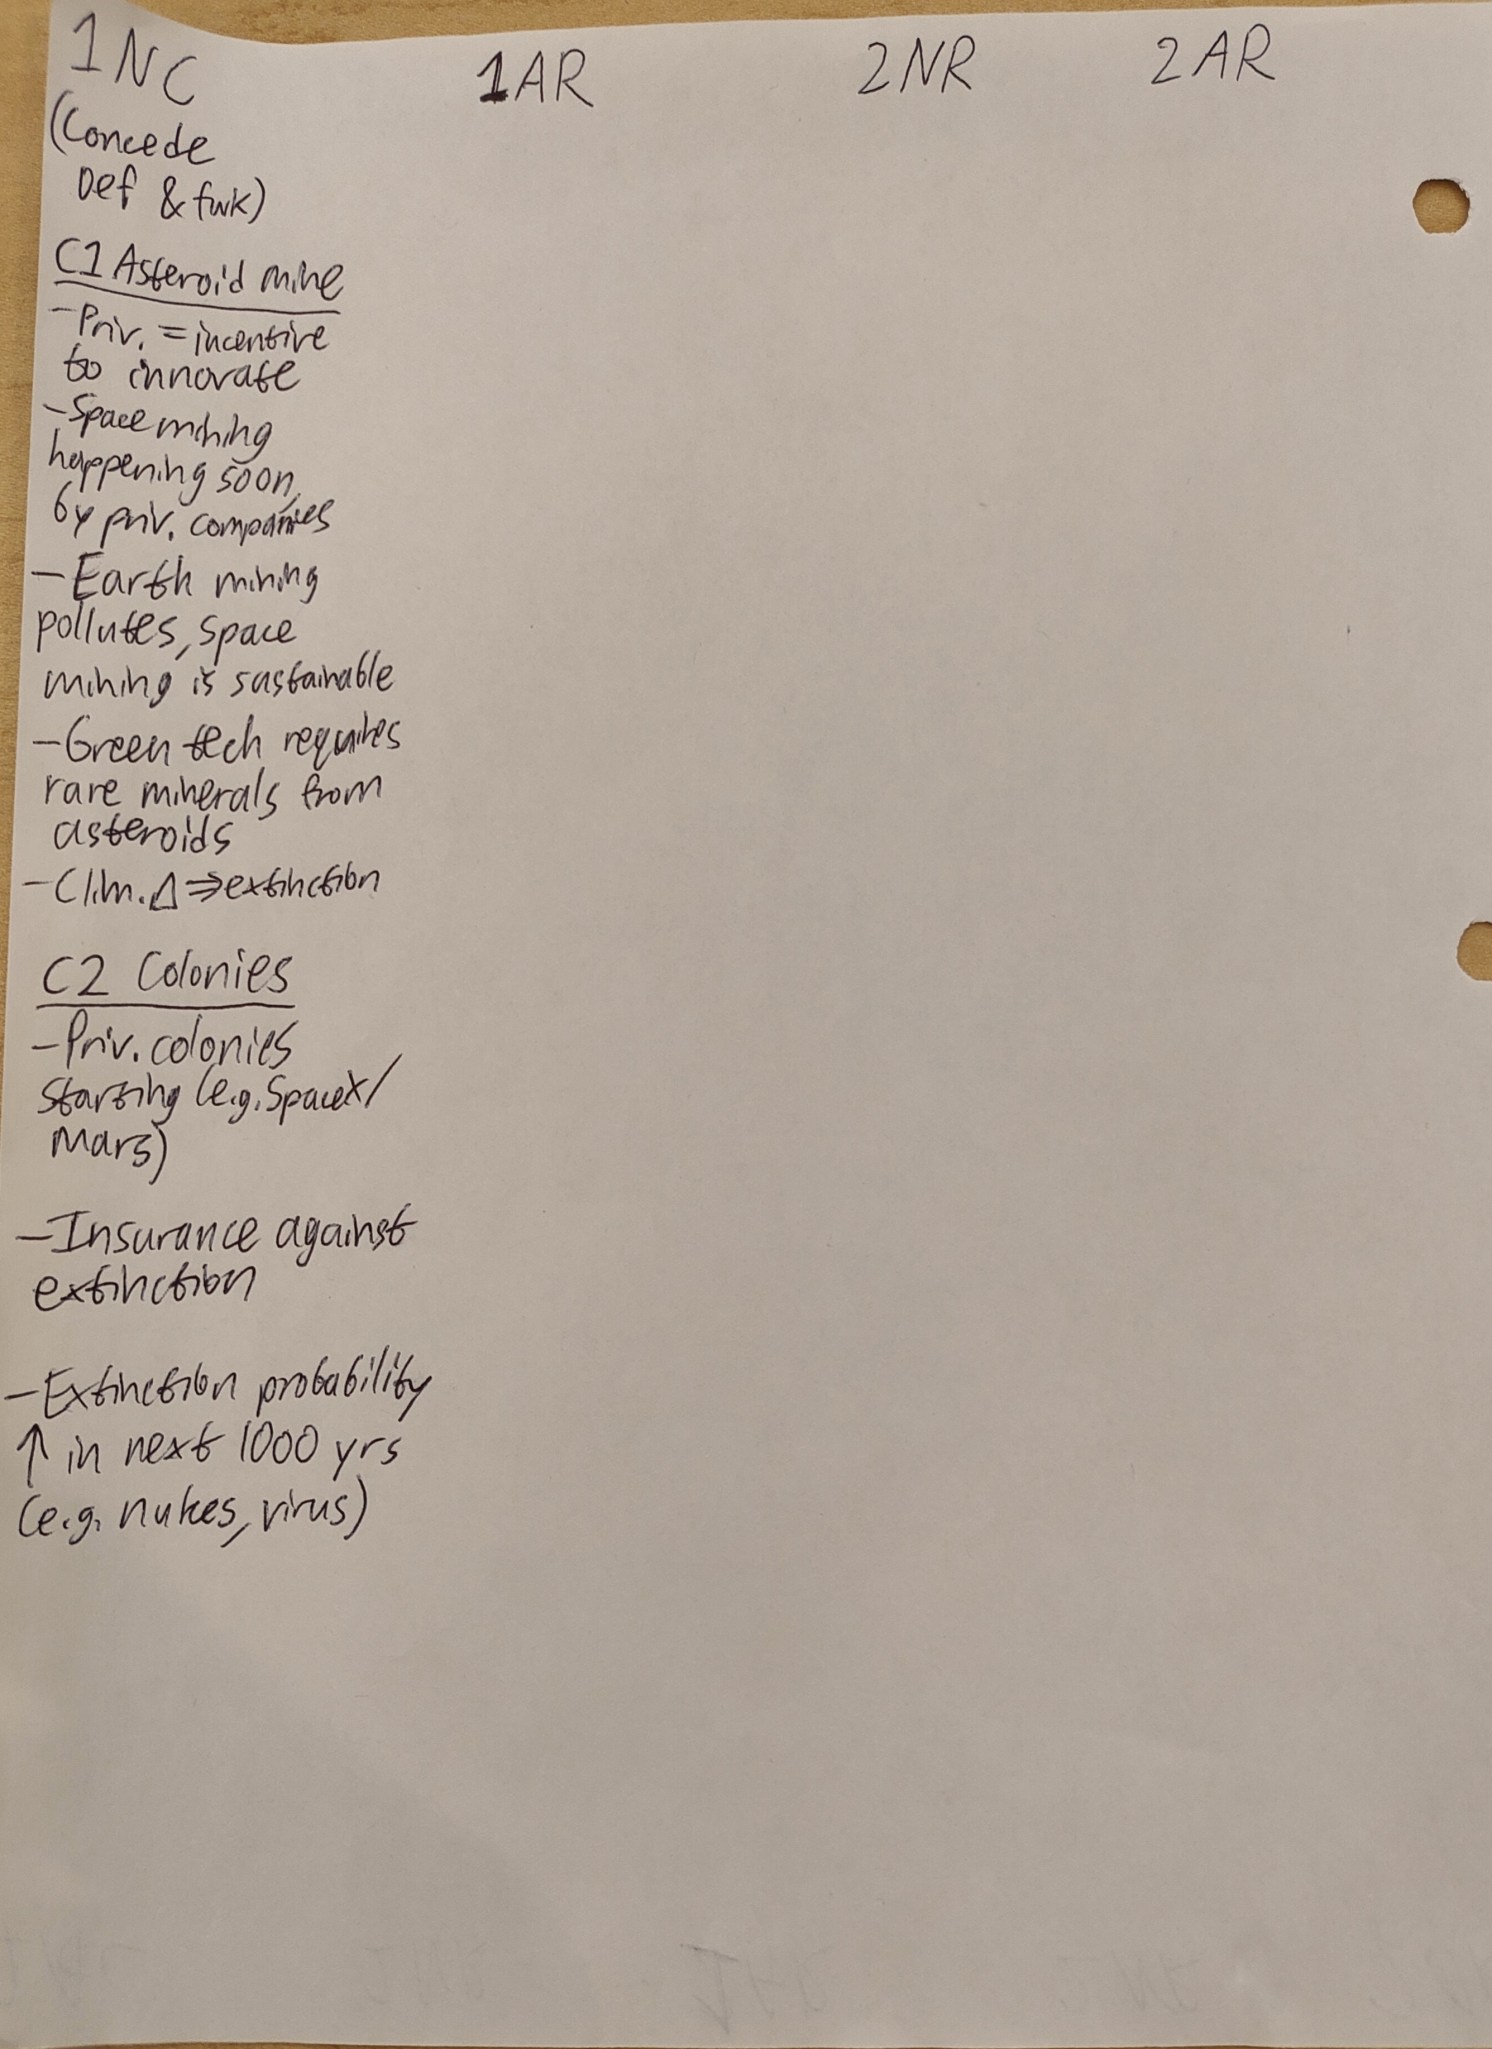 1NC
1AR
2NR
2AR
(Concede
Def & fwk)
C1 Asteroid mine
-Priv. = incentive
to innovate
-Space mining
happening soon,
by priv. companies
-Earth mining
pollutes, space
mining is sustainable
-Green tech requires
rare minerals from
asteroids
-Clim. Δ ⇒ extinction
C2 Colonies
-Priv. colonies
starting (e.g. SpaceX/
Mars)
-Insurance against
extinction
-Extinction probability
↑ in next 1000 yrs
(e.g. nukes, virus)